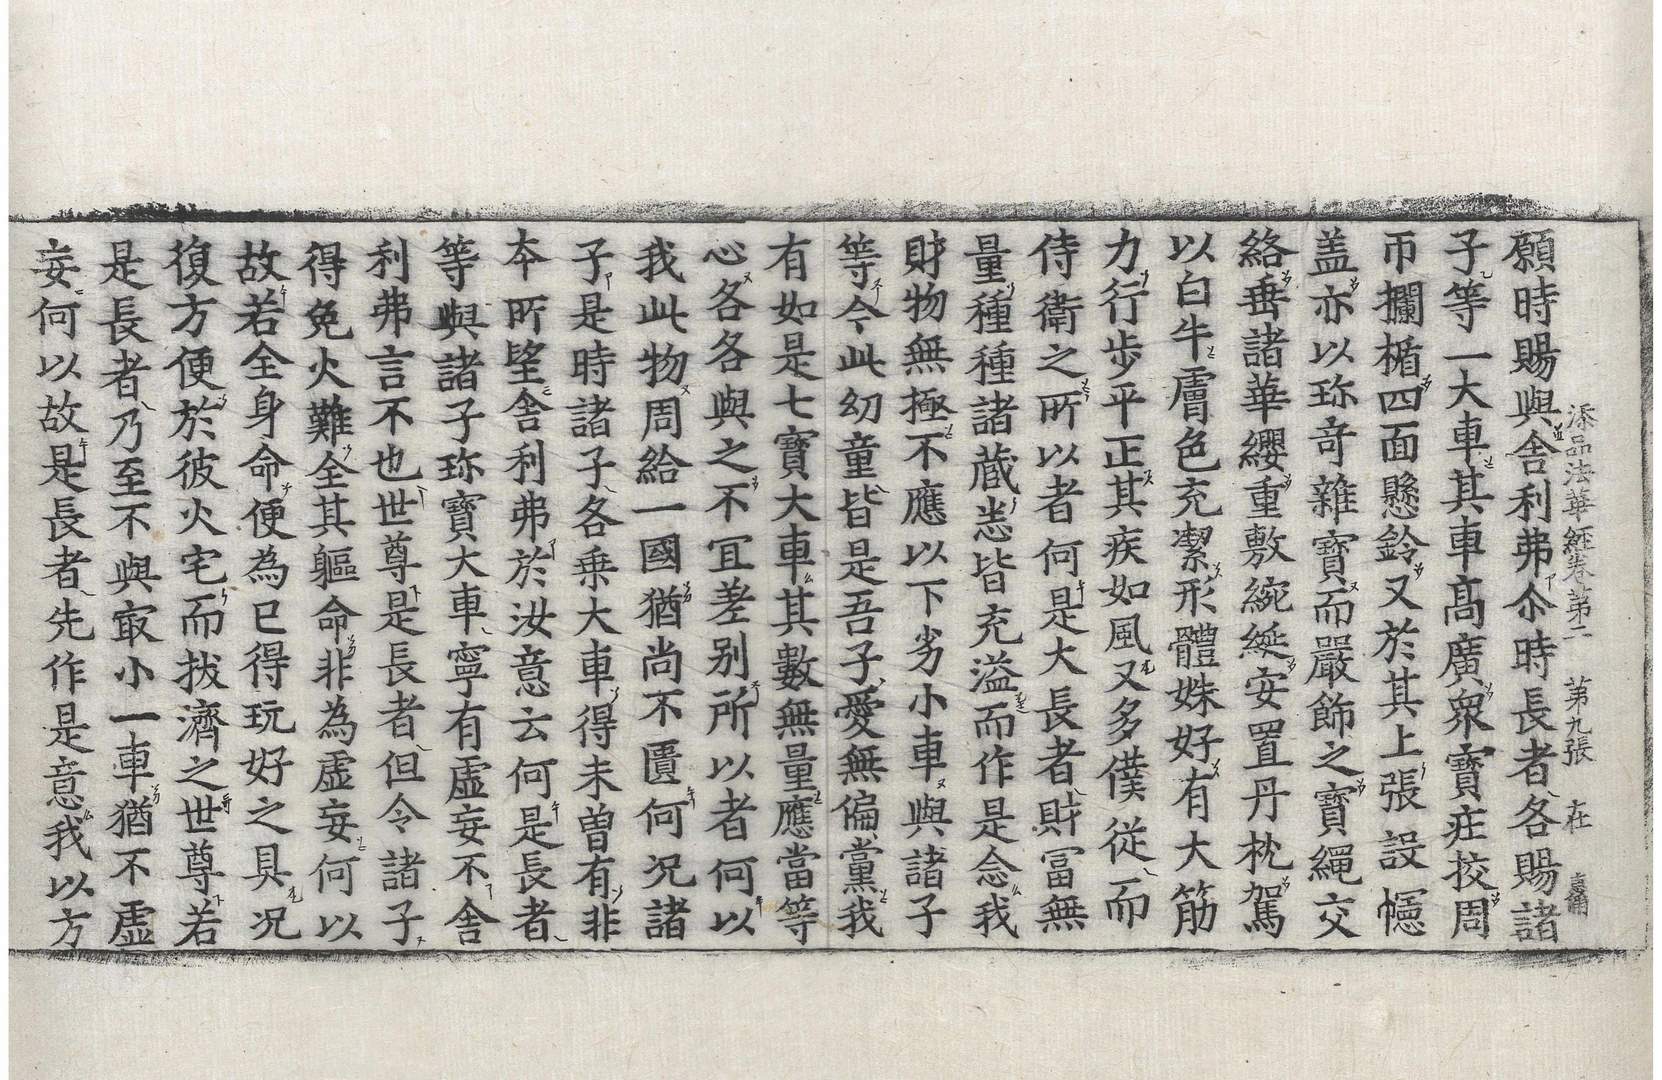 添品法華經卷第二 第九張 在
願時賜與舍利弗尒時長者各賜諸
子等一大車其車髙廣衆寳莊挍周
帀攔楯四面懸鈴又於其上張設幰
盖亦以珎竒雜寳而嚴飾之寳繩交
絡垂諸華纓重敷綩綖安置丹枕駕
以白牛膚色充潔形體姝好有大筋
力行步平正其疾如風又多僕從而
侍衛之所以者何是大長者財冨無
量種種諸蔵悉皆充溢而作是念我
財物無極不應以下劣小車與諸子
等今此幼童皆是吾子愛無偏黨我
有如是七寳大車其數無量應當等
心各各與之不冝差別所以者何以
我此物周給一國猶尚不匱何况諸
子是時諸子各乗大車得未曽有非
夲所望舍利弗於汝意云何是長者
等與諸子珎寳大車寧有虛妄不舍
利弗言不也世尊是長者但令諸子
得免火難全其軀命非為虛妄何以
故若全身命便為已得玩好之具况
復方便於彼火宅而拔濟之世尊若
是長者乃至不與㝡小一車猶不虛
妄何以故是長者先作是意我以方